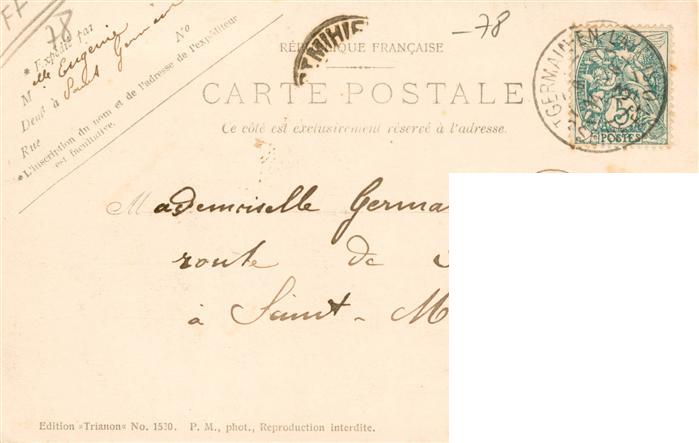 FF
78
-78
* Expédié par
Mlle Eugénie
Deut à Saint Germain
Rue No
* L'inscription du nom et de l'adresse de l'expéditeur
est facultative.
MIHIE
RÉPUBLIQUE FRANÇAISE
CARTE POSTALE
Ce côté est exclusivement réservé à l'adresse.
GERMAIN-EN-LA
5
POSTES
Mademoiselle Germa
route de
à Saint-M
Edition »Trianon« No. 1530. P. M., phot., Reproduction interdite.